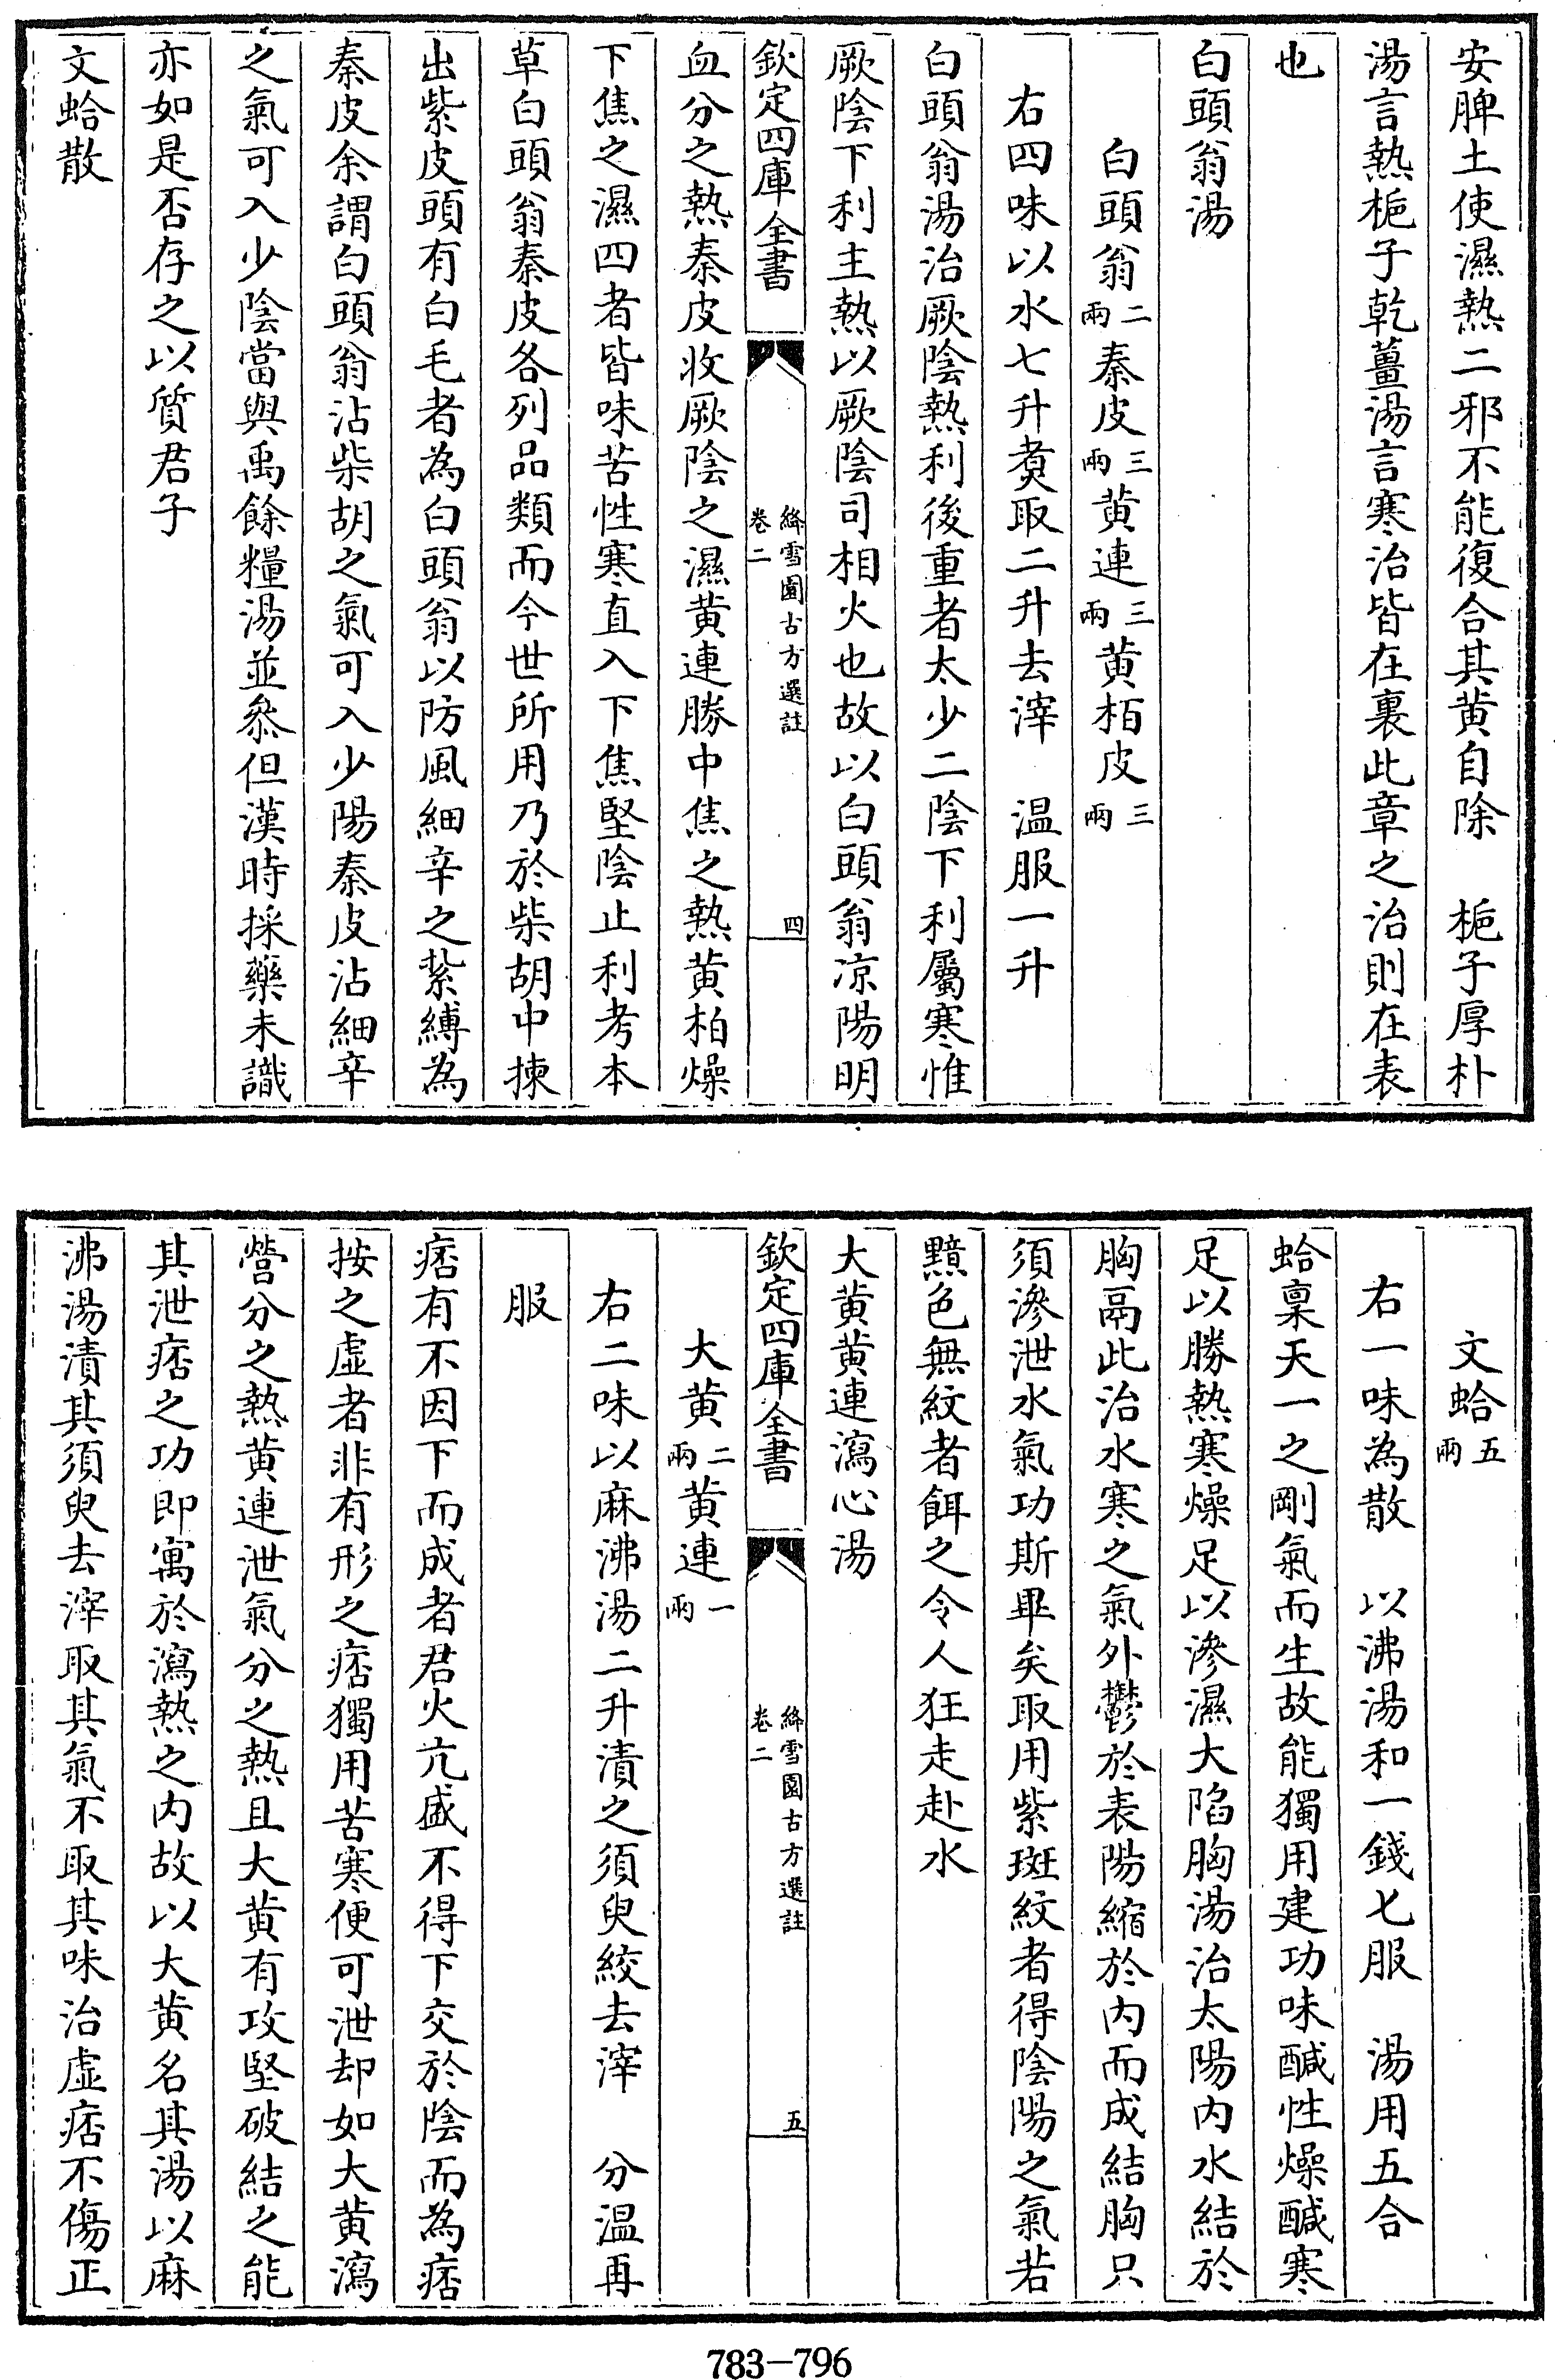 安脾土使濕熱二邪不能復合其黄自除　梔子厚朴
湯言熱梔子乾薑湯言寒治皆在裏此章之治則在表
也
白頭翁湯
白頭翁二兩秦皮三兩黄連三兩黄栢皮三兩
右四味以水七升煑取二升去滓　温服一升
白頭翁湯治厥陰熱利後重者太少二陰下利屬寒惟
厥陰下利主熱以厥陰司相火也故以白頭翁凉陽明
欽定四庫全書
絳雪園古方選註
卷二
四
血分之熱秦皮收厥陰之濕黄連勝中焦之熱黄柏燥
下焦之濕四者皆味苦性寒直入下焦堅陰止利考本
草白頭翁秦皮各列品類而今世所用乃於柴胡中揀
出紫皮頭有白毛者為白頭翁以防風細辛之紮縛為
秦皮余謂白頭翁沾柴胡之氣可入少陽秦皮沾細辛
之氣可入少陰當與禹餘糧湯並叅但漢時採藥未識
亦如是否存之以質君子
文蛤散
文蛤五兩
右一味為散　以沸湯和一錢匕服　湯用五合
蛤稟天一之剛氣而生故能獨用建功味鹹性燥鹹寒
足以勝熱寒燥足以滲濕大陷胸湯治太陽内水結於
胸鬲此治水寒之氣外鬱於表陽縮於内而成結胸只
須滲泄水氣功斯畢矣取用紫斑紋者得陰陽之氣若
黯色無紋者餌之令人狂走赴水
大黄黄連瀉心湯
欽定四庫全書
絳雪園古方選註
卷二
五
大黄二兩黄連一兩
右二味以麻沸湯二升漬之須臾絞去滓　分温再
服
痞有不因下而成者君火亢盛不得下交於陰而為痞
按之虛者非有形之痞獨用苦寒便可泄却如大黄瀉
營分之熱黄連泄氣分之熱且大黄有攻堅破結之能
其泄痞之功即寓於瀉熱之内故以大黄名其湯以麻
沸湯漬其須臾去滓取其氣不取其味治虛痞不傷正
783-796